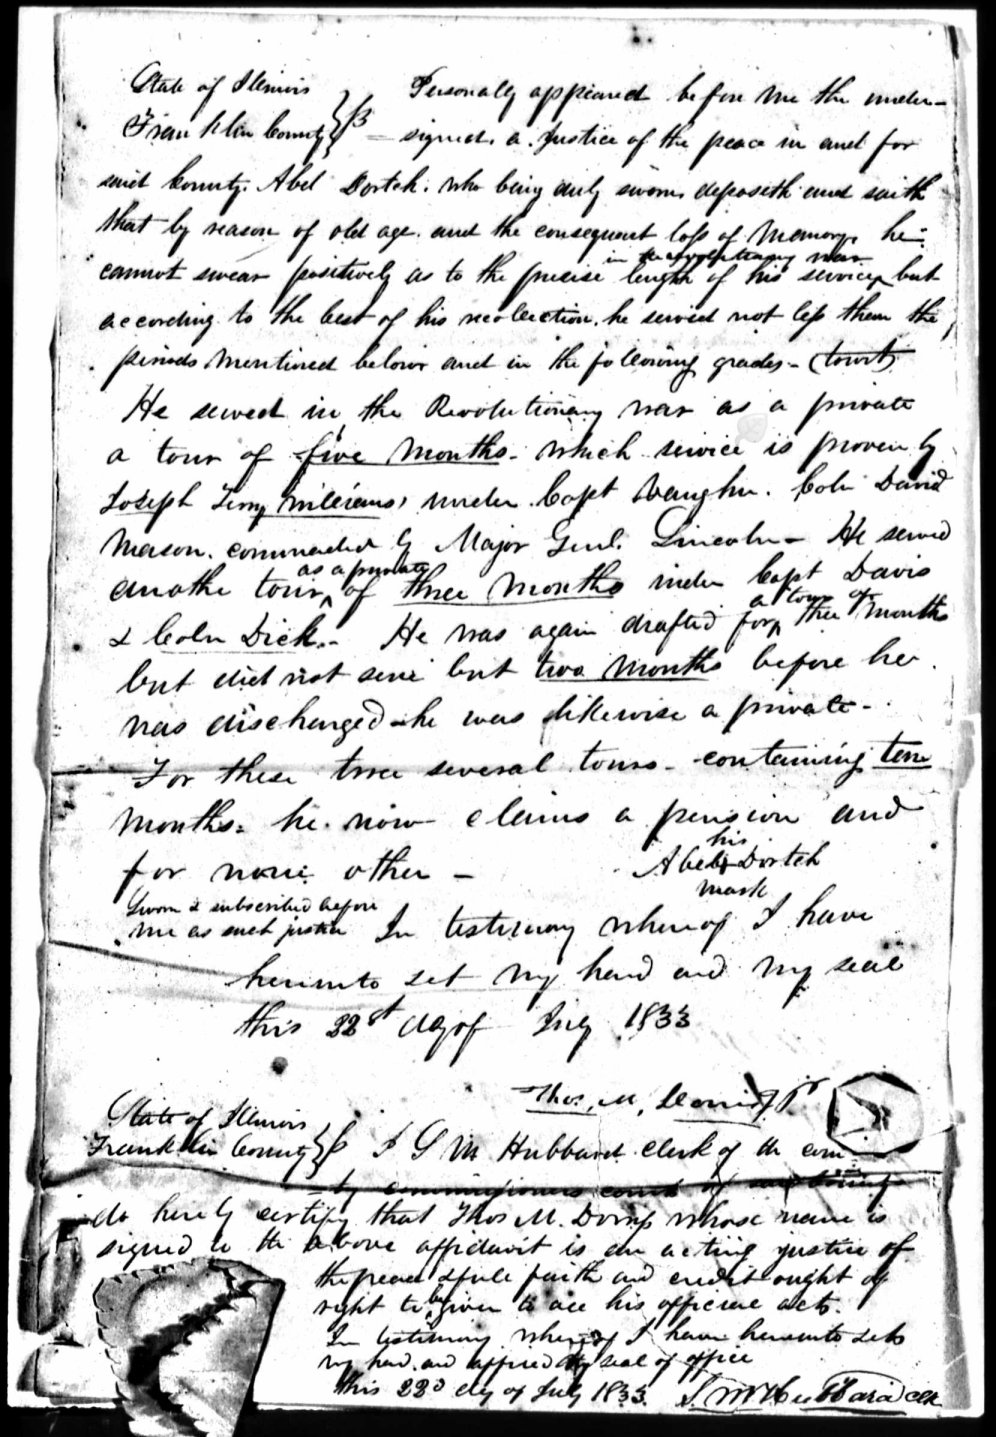 State of Illinois
Franklin County } Personally appeared before me the under-
signed, a Justice of the peace in and for
said County. Abel Dortch. who being duly sworn deposith and saith
that by reason of old age. and the consequent loss of memory. he
cannot swear positively as to the precise length of his service in revolutionary war but
according to the best of his recolection. he served not less than the
periods mentioned below and in the following grades - (towit)
He served in the Revolutionary war as a private
a tour of five months - which service is proven by
Joseph Terry Williams, under Capt Vaughn. Coln David
Mason. commanded by Major Genl. Lincoln - He served
anothe tour as a private of three months under Capt Davis
& Coln Dick. - He was again drafted for a tour of three months
but did not serve but two months before he
was discharged - he was likewise a private -
For these three several tours - containing tenn
months. he now claims a pension and
for none other -
his
Abel Dortch
mark
Sworn & subscribed before
me as such justice
In testimony whereof I have
hereunto set my hand and my seal
this 22st dayof July 1833
Thos. M. Dorris J P
State of Illinois
Franklin County } I S M Hubbard clerk of the coun
ty commissioners court of said County
do hereby certify that Thos M. Dorris whose name is
signed to the above affidavit is an acting justice of
the peace & full faith and credit ought of
right to be given to all his official acts.
In testimony whereof I have hereunto set
my hand and affixed my seal of office
this 22d day of July 1833. S. M Hubbard Clk